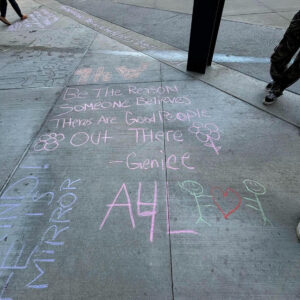 Be the Reason
Someone Believes
Theres are Good People
Out There
-Genice
A4L
MIRROR